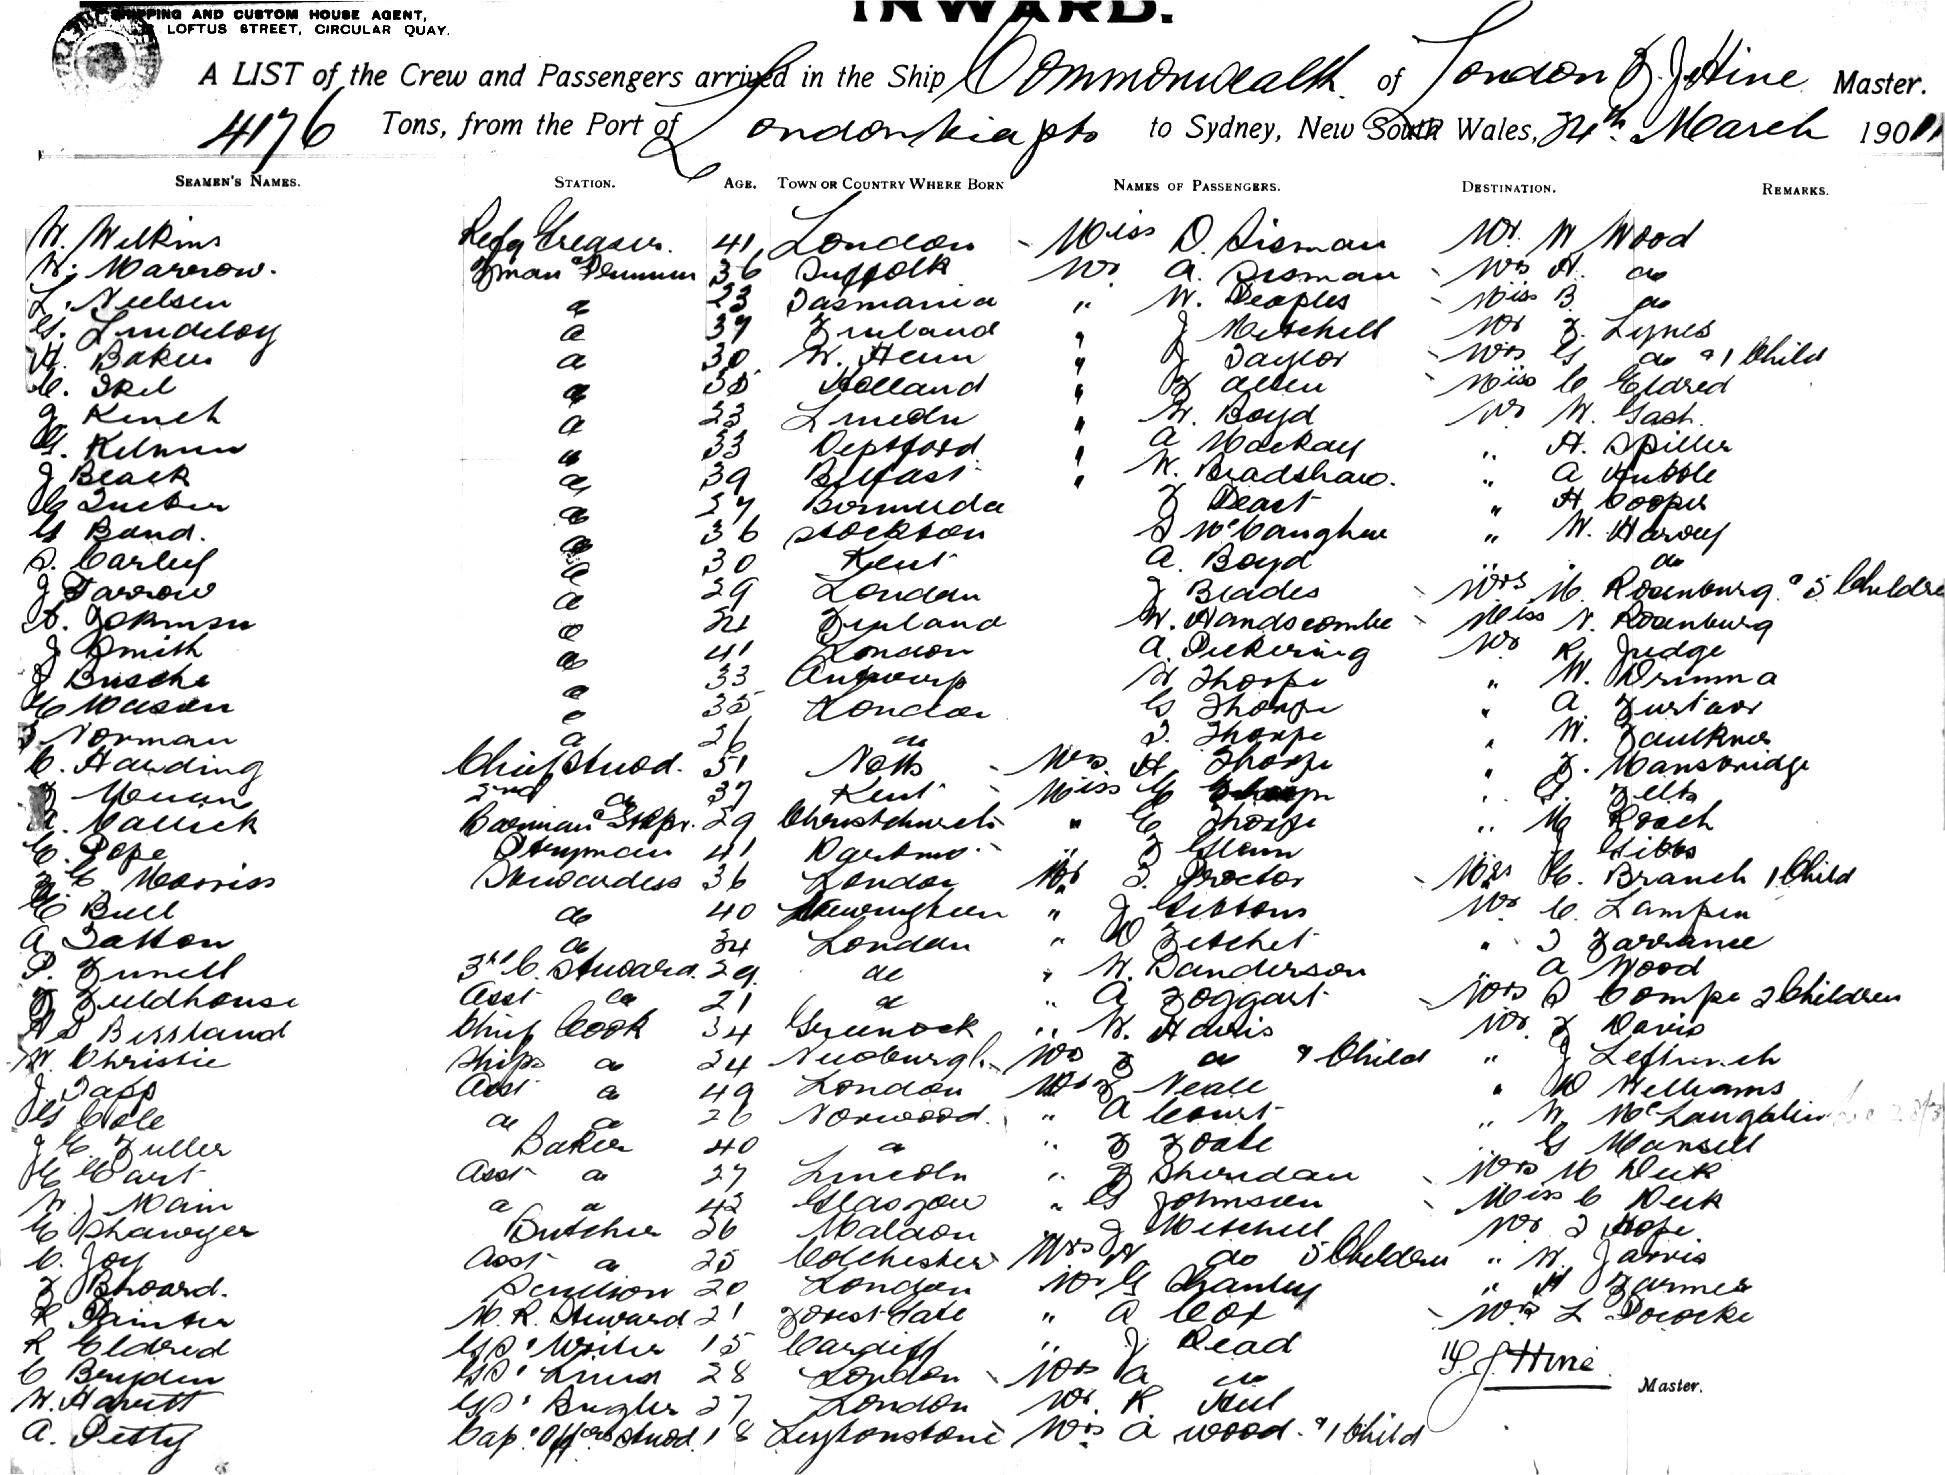 INWARD.
SHIPPING AND CUSTOM HOUSE AGENT,
LOFTUS STREET, CIRCULAR QUAY.
A LIST of the Crew and Passengers arrived in the Ship Commonwealth of London F. J. Hine Master.
4176 Tons, from the Port of London via pts to Sydney, New South Wales, 24th March 190
SEAMEN'S NAMES. STATION. AGE. TOWN OR COUNTRY WHERE BORN NAMES OF PASSENGERS. DESTINATION. REMARKS.
W. Wilkins Refg Greaser. 41 London Miss D. Sisman Mr. W Wood
W. Marrow. 36 Suffolk Mr A. Sisman Mrs H. do
L. Neilsen 23 Tasmania " W. Peoples Miss B. do
G. Lindeloy 37 Finland " J Mitchell Mr F. Lynes
H. Baker 30 W. Ham " J Taylor Mrs G do & 1 Child
C. 35 Holland " F Allen Miss C Eldred
J. Kinch 23 Lincoln " W. Boyd Mr W. Gash.
G. 33 Deptford " A Mackay " H. Spiller
J Black 39 Belfast " W. Bradshaw. " A Hubble
C Tucker 27 Bermuda F Peart " H Cooper
G Band. 36 Stockton S McCaughue " W. Harvey
S. Carley 30 Kent A. Boyd " do
J Farrow 29 London J Beades Mrs M. Rosenburg & 5 Children
A. Johnson 24 Finland W. Handscombe Miss N. Rosenburg
J Smith 41 London A. Pickering Mr R. Judge
J Busche 33 Antwerp W Thorpe " W. Drimma
C Mason 35 London G Thorpe " A Gustavr
Norman 26 do S. Thorpe " W. Faulkner
C. Harding Chief Stwod. 51 Notts Mrs H Thorpe " F. Mansbridge
2nd do 37 Kent Miss
29 Christchurch " E Thorpe " M Roach
C. Pope Stryman 41 F Glenn J Gibbs
Morriss Stewardess 36 London Mr T. Proctor Mrs C. Branch 1 Child
C Bull do 40 " J Gibbons Mr C. Lampen
A Tatton do 34 London " D Fetchet " T Farrance
P. Funell 3rd C. Steward. 29 do " W. Sanderson A Wood
F Fieldhouse Asst do 21 do " A Foggart Mrs S Compe 2 Children
A S Bissland Chief Cook 34 Greenock " W. Harris Mr F Davis
W. Christie Ships do 24 Newburgh Mrs F do & Child " J Leftwich
J Tapp Asst do 49 London Neale " D Williams
G Cole do do 26 Norwood. " A Court " W. McLaughlin
J C. Fuller Baker 40 do " F Foale " G Mansell
C Cart Asst do 27 Lincoln " F Sheridan Mrs M Deck
W. J Main do do 42 Glasgow " G Johnson Miss C Deck
C Shawyer Butcher 26 Maldon " J Mitchell Mr T Hope
C. Joy Asst do 25 Colchester Mrs H do 5 Children " W. Jarvis
F Broard. Scullion 20 London Mr G Chanley " H Farmer
R Painter M. R. Steward 21 Forest Gate " A Cox Mrs L Pococke
R Eldred Writer 15 Cardiff " J Read
C Bryden 28 London Mrs A do
W. Hewitt Bugler 27 London Mr. R.
A. Petty Cap. Offcrs Stwod. 18 Leytonstone Mrs A Wood & 1 Child
F. J. Hine Master.